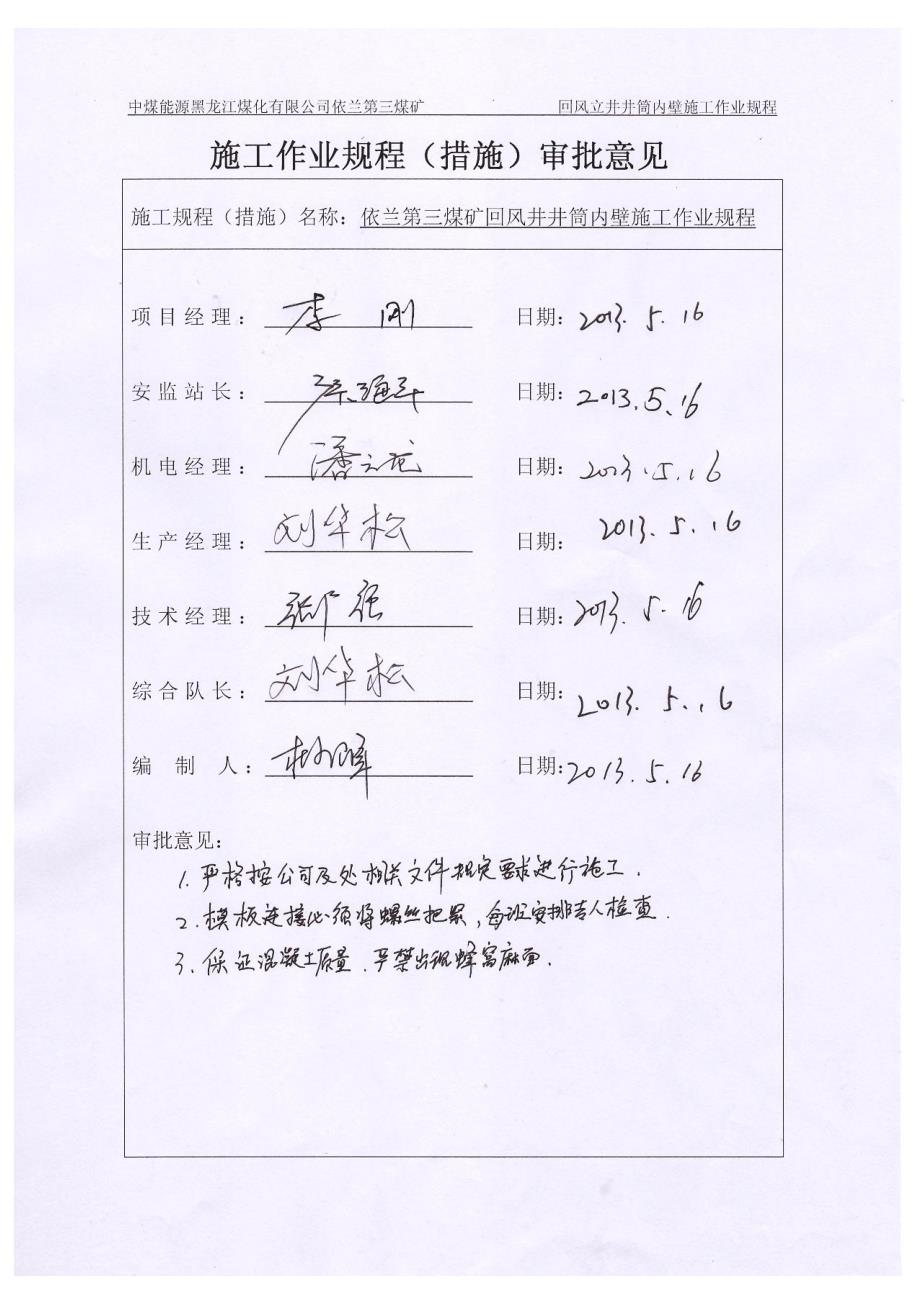 中煤能源黑龙江煤化有限公司依兰第三煤矿 回风立井井筒内壁施工作业规程
施工作业规程（措施）审批意见
施工规程（措施）名称：依兰第三煤矿回风井井筒内壁施工作业规程
项目经理： 李刚 日期：2013.5.16
安监站长： 日期：2013.5.16
机电经理： 潘云龙 日期：2013.5.16
生产经理： 刘华松 日期：2013.5.16
技术经理： 张广强 日期：2013.5.16
综合队长： 刘华松 日期：2013.5.16
编制人： 日期：2013.5.16
审批意见：
1. 严格按公司及处相关文件规定要求进行施工.
2. 模板连接必须将螺丝把紧，每班安排专人检查.
3. 保证混凝土质量.严禁出现蜂窝麻面.